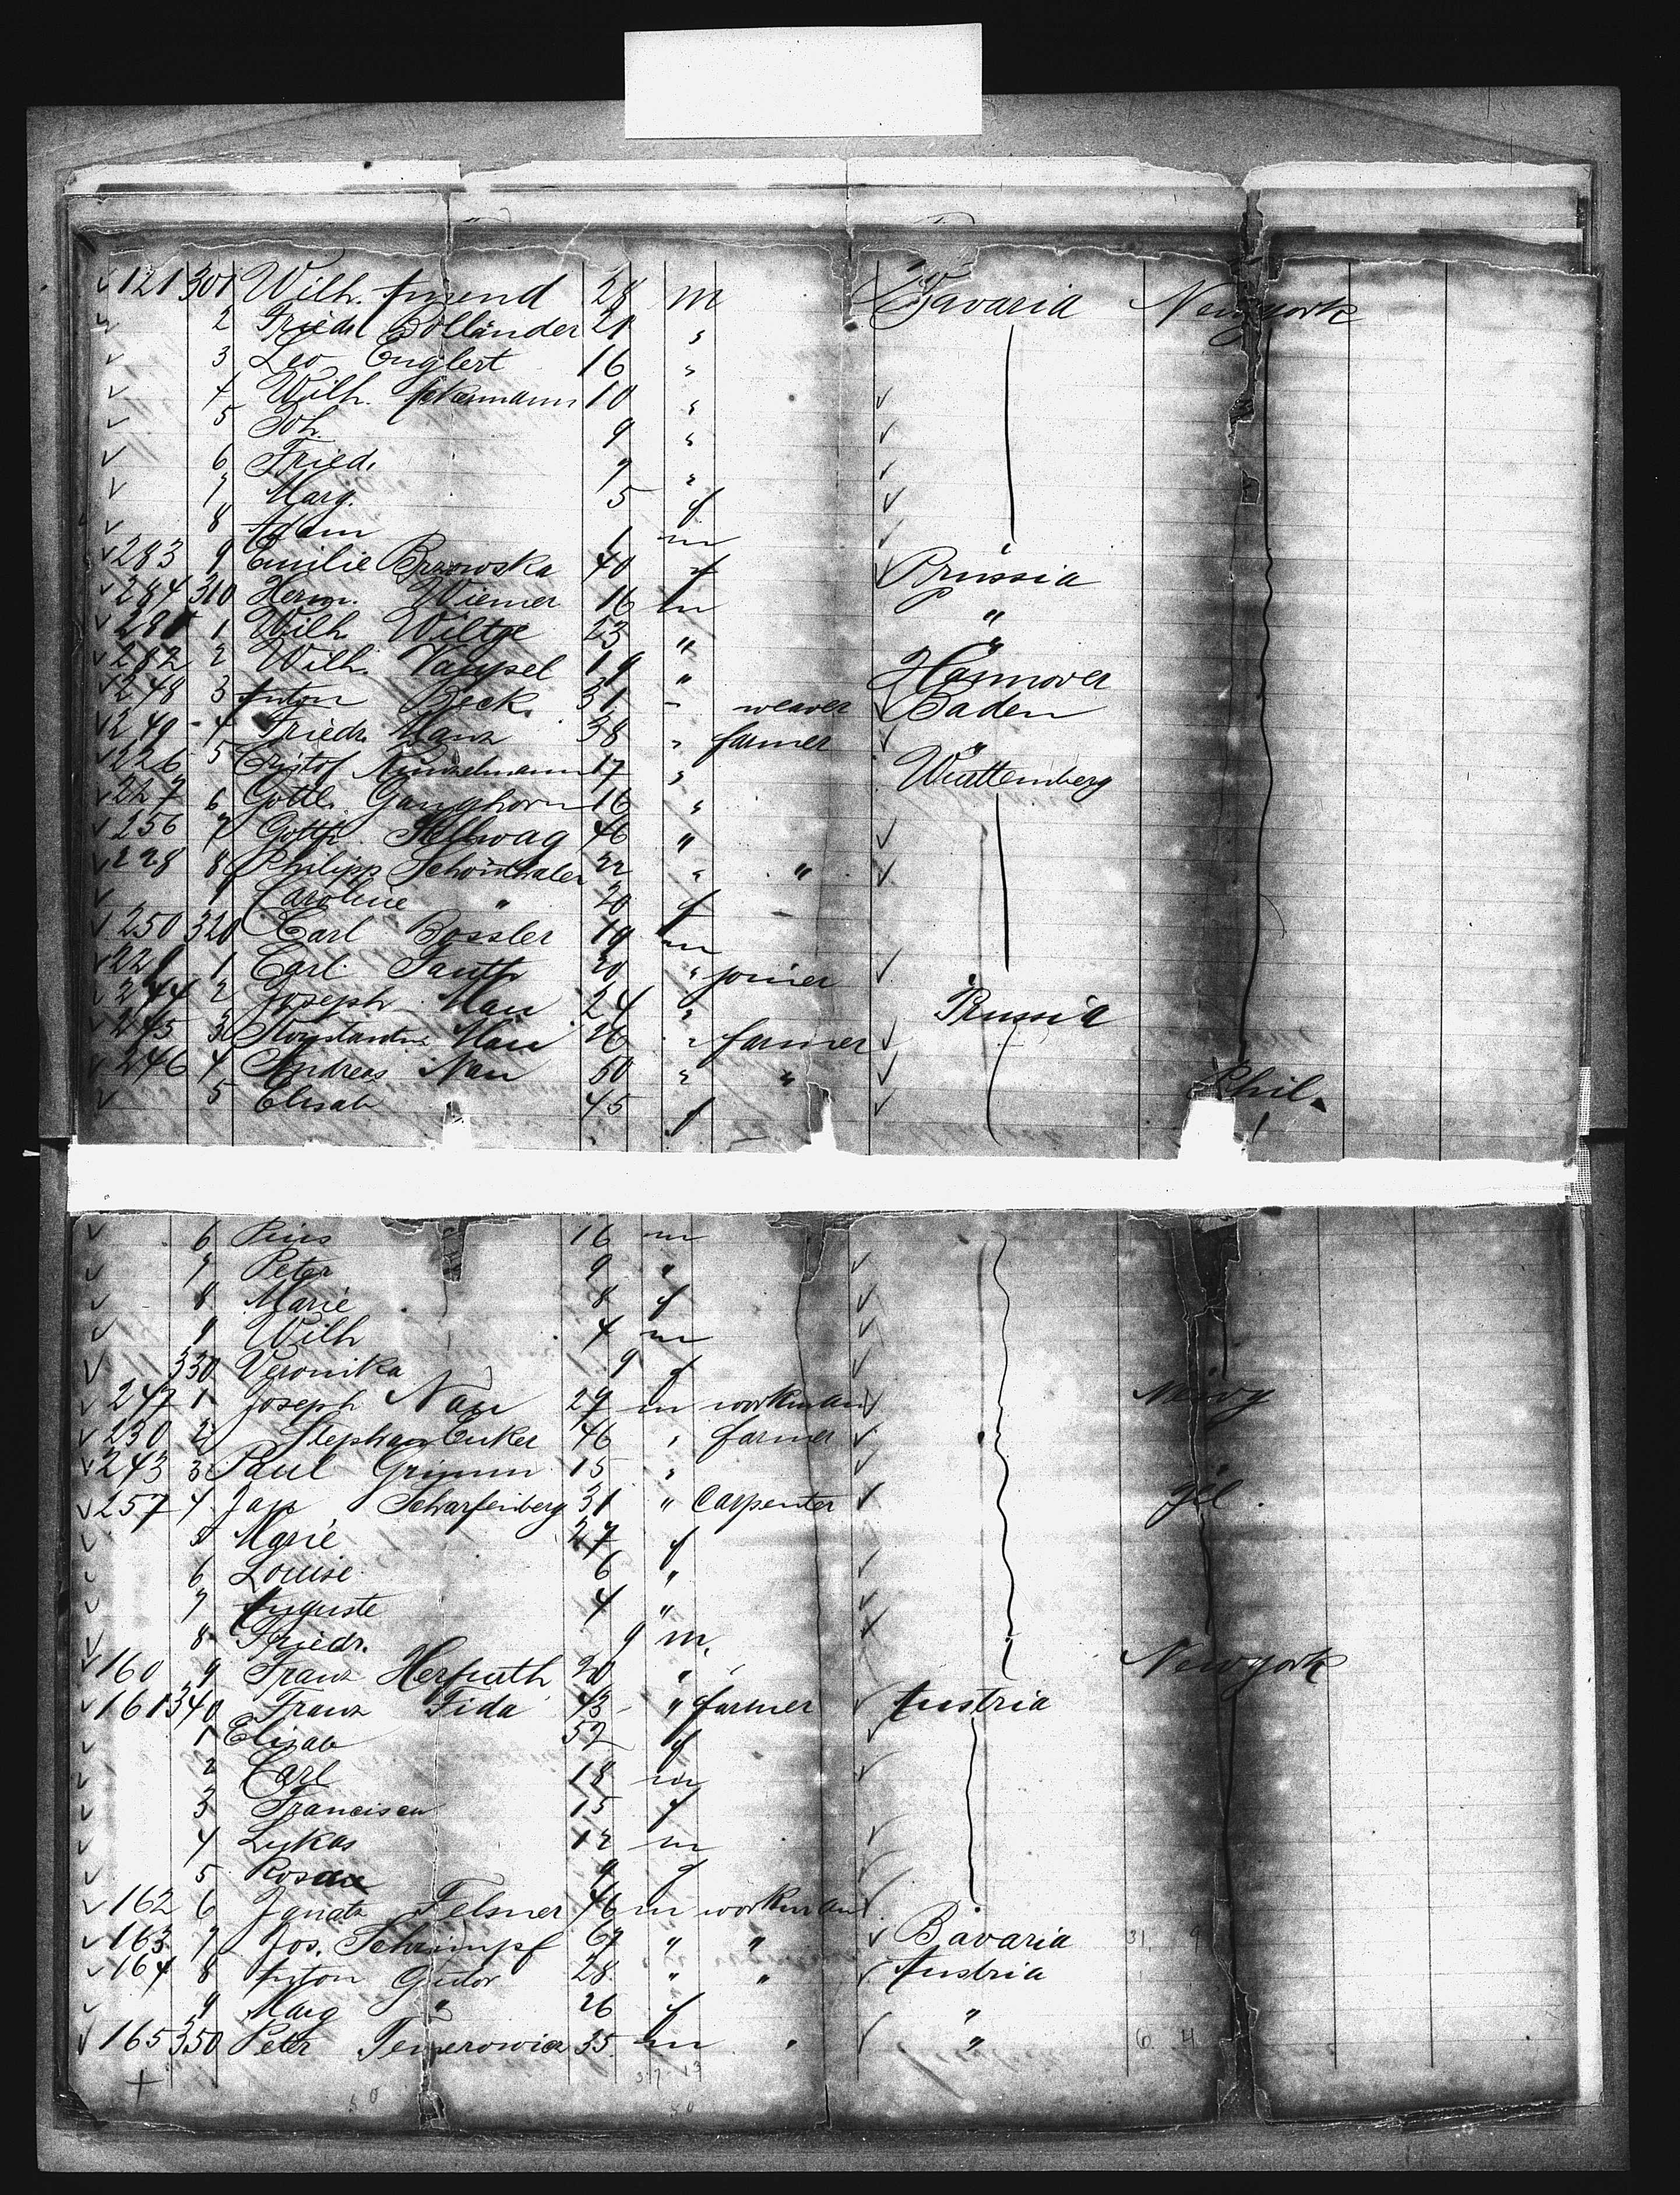 121 301 Wilh. Amend 28 m Bavaria Newyork
2 Friedr. Bolländer 21 "
3 Leo Englert 16 "
4 Wilh. Ackermann 10 "
5 Joh. 9 "
6 Fried. 7 "
7 Marg. 5 f
8 Adam 1 m
283 9 Emilie 40 f Prussia
284 310 Herm. Wiemer 16 m "
1 Wilh. Wiltge 23 " "
282 2 Wilh. Vaupel 19 " Hannover
248 3 Anton Beck 31 " weaver Baden
249 4 Friedr. Manz 38 " farmer "
226 5 Cristof 17 " Württemberg
227 6 Gottl. Ganghorn 16 "
256 7 Gottfr. Hellwag 46 "
228 8 Philipp Schönthaler 22 " "
9 Caroline " 20 f
250 320 Carl Bossler 19 m
221 1 Carl Fauth 20 " joiner
244 2 Joseph Nau 24 " Prussia
245 3 Konstantin Nau 26 " farmer
246 4 Andreas Nau 50 " " Phil.
5 Elisab 45 f
6 Pius 16 m
7 Peter 9 "
8 Marie 8 f
9 Wilh 4 m
330 Veronika 9 f
247 1 Joseph Nau 29 m workman
230 2 Stephan Enker 46 " farmer
243 3 Paul Grimm 15 " "
257 4 Scharfenberg 31 " Carpenter
5 Marie 27 f
6 Louise 6 "
7 Auguste 4 "
8 Friedr. 9 m.
160 9 Franz Herfurth 20 " Newyork
161 340 Franz Fida 43 " farmer Austria
1 Elisab 52 f
2 Carl 18 m
3 Francisca 15 f
4 Lukas 12 m
5 9 f
162 6 Ignatz Felsner 46 m workman
163 7 Jos. Schrimpf 67 " " Bavaria 31. 9
164 8 Anton Gutor 28 " " Austria
9 Marg " 26 f "
165 350 Peter 35 m " " 6 4
37 13
50 50